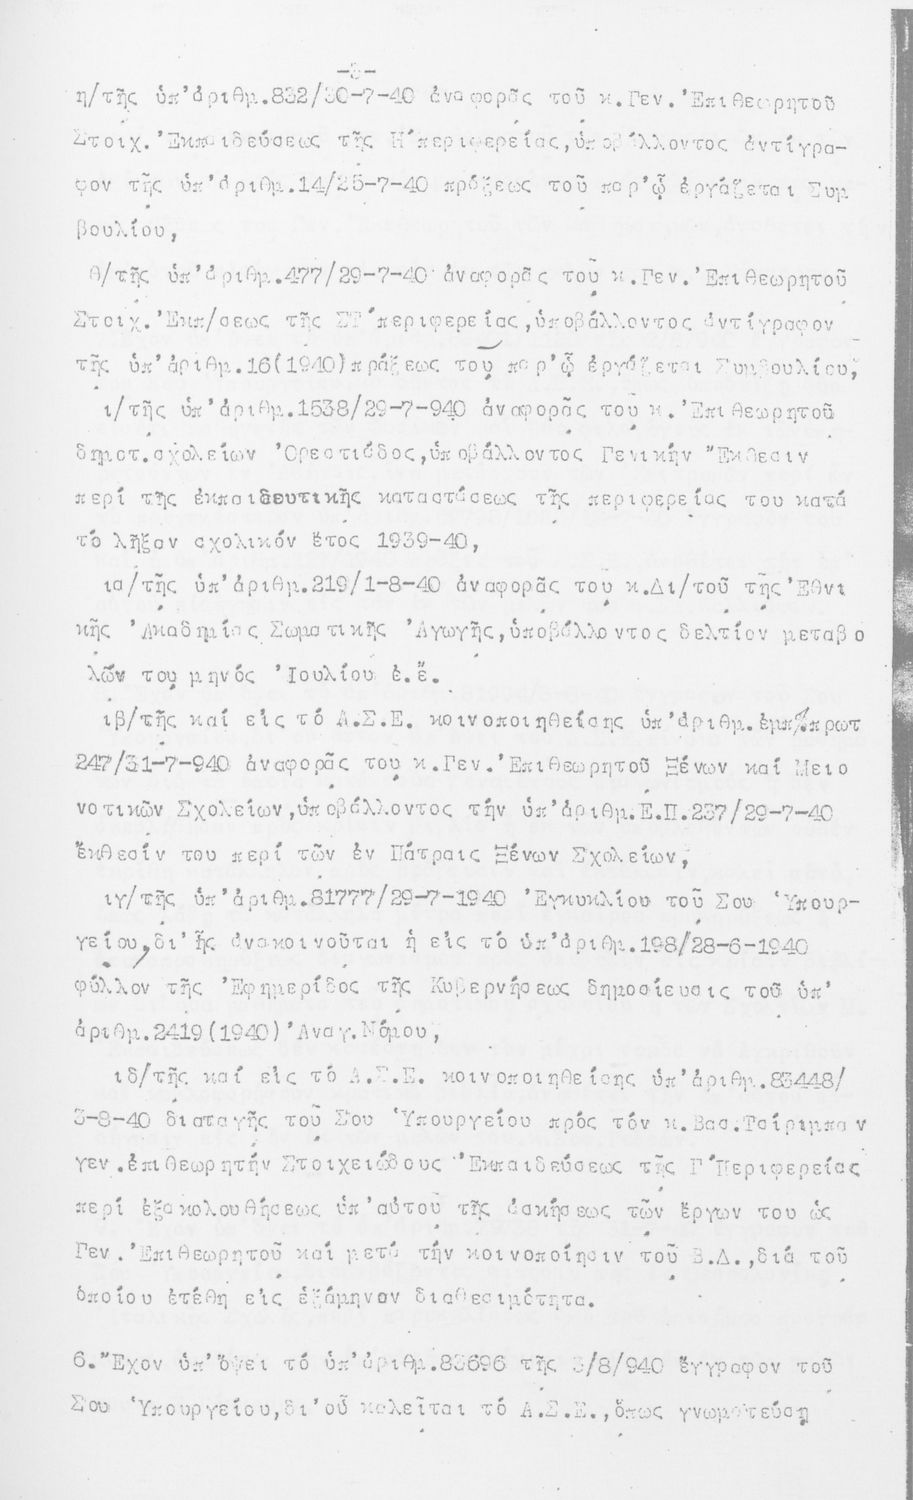 η/τῆς ὑπ'ἀριθμ.832/30-7-40 ἀναφορᾶς τοῦ κ.Γεν.'Επιθεωρητοῦ
Στοιχ.'Εκπαιδεύσεως τῆς Η'περιφερείας,ὑποβάλλοντος ἀντίγρα-
φον τῆς ὑπ'ἀριθμ.14/25-7-40 πράξεως τοῦ παρ'ᾧ ἐργάζεται Συμ
βουλίου,
θ/τῆς ὑπ'ἀριθμ.477/29-7-40 ἀναφορᾶς τοῦ κ.Γεν.'Επιθεωρητοῦ
Στοιχ.'Εκπ/σεως τῆς ΣΤ'περιφερείας,ὑποβάλλοντος ἀντίγραφον
τῆς ὑπ'ἀριθμ.16(1940)πράξεως του παρ'ᾧ ἐργάζεται Συμβουλίου,
ι/τῆς ὑπ'ἀριθμ.1538/29-7-940 ἀναφορᾶς τοῦ κ.'Επιθεωρητοῦ
δημοτ.σχολείων 'Ορεστιάδος,ὑποβάλλοντος Γενικήν "Εκθεσιν
περί τῆς ἐκπαιδευτικῆς καταστάσεως τῆς περιφερείας του κατά
τό λῆξαν σχολικόν ἔτος 1939-40,
ια/τῆς ὑπ'ἀριθμ.219/1-8-40 ἀναφορᾶς τοῦ κ.Δι/τοῦ τῆς'Εθνι
κῆς 'Ακαδημίας Σωματικῆς 'Αγωγῆς,ὑποβάλλοντος δελτίον μεταβο
λῶν του μηνός 'Ιουλίου ἐ.ἔ.
ιβ/τῆς καί εἰς τό Α.Σ.Ε. κοινοποιηθείσης ὑπ'ἀριθμ.ἐμπ/πρωτ
247/31-7-940 ἀναφορᾶς του κ.Γεν.'Επιθεωρητοῦ Ξένων καί Μειο
νοτικῶν Σχολείων,ὑποβάλλοντος τήν ὑπ'ἀριθμ.Ε.Π.237/29-7-40
ἔκθεσίν του περί τῶν ἐν Πάτραις Ξένων Σχολείων,
ιγ/τῆς ὑπ'ἀριθμ.81777/29-7-1940 'Εγκυκλίου τοῦ Σου 'Υπουρ-
γείου,δι'ἧς ἀνακοινοῦται ἡ εἰς τό ὑπ'ἀριθμ.198/28-6-1940
φύλλον τῆς 'Εφημερίδος τῆς Κυβερνήσεως δημοσίευσις τοῦ ὑπ'
ἀριθμ.2419(1940)'Αναγ.Νόμου,
ιδ/τῆς καί εἰς τό Α.Σ.Ε. κοινοποιηθείσης ὑπ'ἀριθμ.83448/
3-8-40 διαταγῆς τοῦ Σου 'Υπουργείου πρός τόν κ.Βασ.Τσίριμπαν
γεν.ἐπιθεωρητήν Στοιχειώδους 'Εκπαιδεύσεως τῆς Γ'Περιφερείας
περί ἐξακολουθήσεως ὑπ'αὐτοῦ τῆς ἀσκήσεως τῶν ἔργων του ὡς
Γεν.'Επιθεωρητοῦ καί μετά τήν κοινοποίησιν τοῦ Β.Δ.,διά τοῦ
ὁποίου ἐτέθη εἰς ἑξάμηνον διαθεσιμότητα.
6."Εχον ὑπ'ὄψει τό ὑπ'ἀριθμ.83696 τῆς 3/8/940 ἔγγραφον τοῦ
Σου 'Υπουργείου,δι'οὗ καλεῖται τό Α.Σ.Ε.,ὅπως γνωματεύσῃ